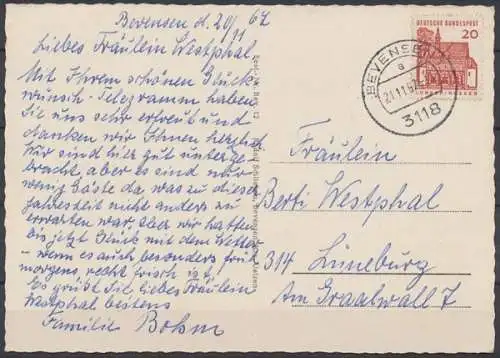 Bevensen d. 20/11 67
Liebes Fräulein Westphal,
Mit Ihrem schönen Glück-
wunsch-Telegramm haben
Sie uns sehr erfreut und
danken wir Ihnen herzlich
Wir sind hier gut unterge-
bracht, aber es sind nur
wenig Gäste da was zu dieser
Jahreszeit nicht anders zu
erwarten war. Und wir hatten
bis jetzt Glück mit dem Wetter
- wenn es auch besonders früh
morgens, recht frisch ist,
Es grüßt Sie liebes Fräulein
Westphal bestens
Familie Bohm
DEUTSCHE BUNDESPOST
20
BEVENSEN
a
21.11.67
3118
Fräulein
Berti Westphal
314 Lüneburg
Am Graalwall 7